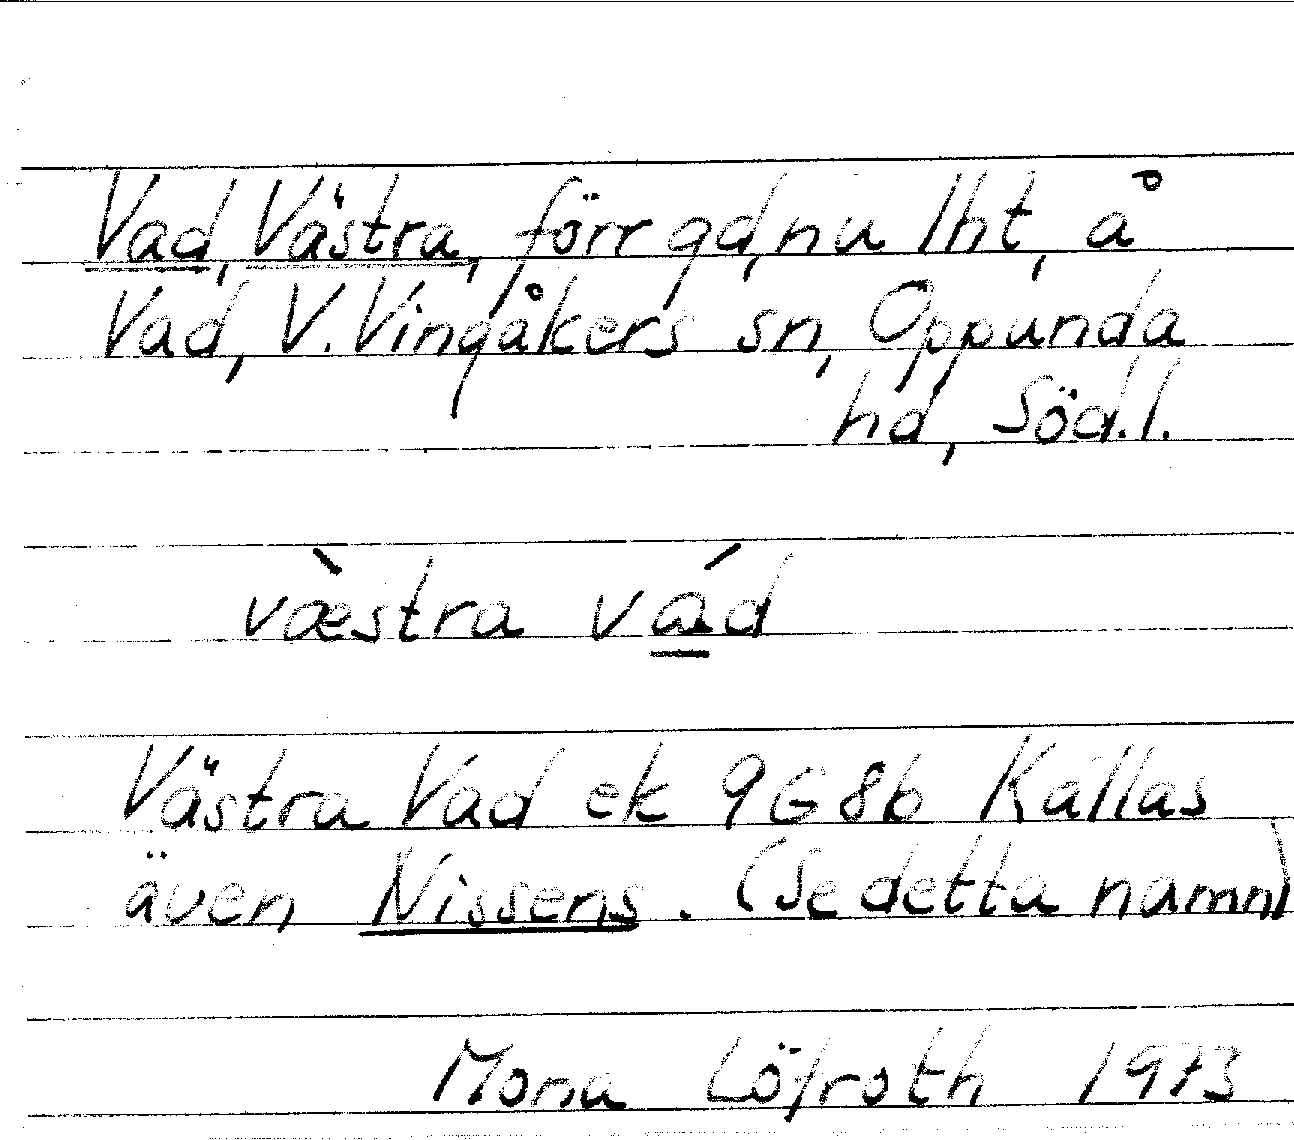 Vad, Västra, förr gd, nu lht, å
Vad, V. Vingåkers sn, Oppunda
hd, Söd. l.
væ̀stra vád
Västra Vad ek 9G8b Kallas
även Nissens. (Se detta namn)
Mona Löfroth 1973